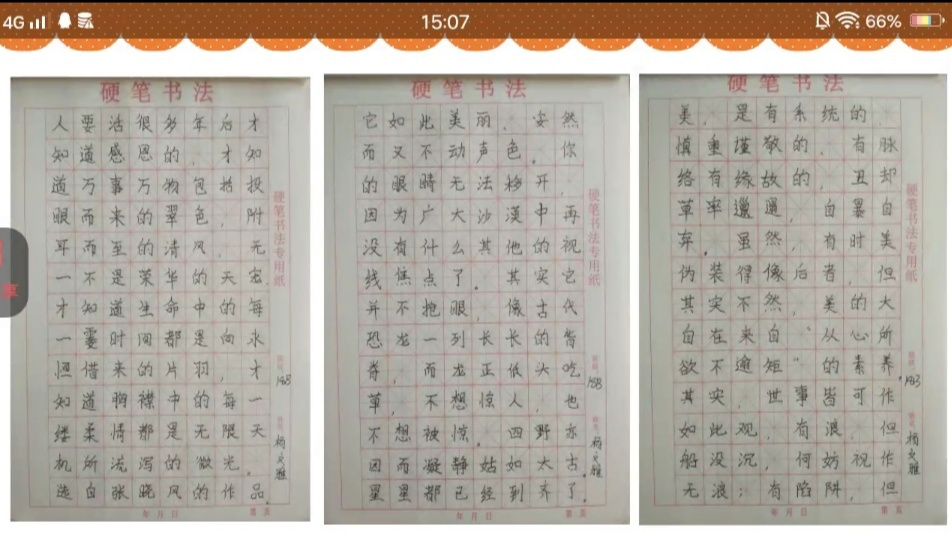 4G
15:07
66%
硬笔书法
人要活很多年后才
知道感恩的，才知
道万事万物包括投
眼而来的翠色，附
耳而至的清风，无
一不是荣华的天宠。
才知道生命中的每
一霎时间都是向永
恒借来的片羽，才
知道胸襟中的每一
缕柔情都是无限天
机所流泻的微光。
选自张晓风的作品。
硬笔书法专用纸
188
杨文雅
年 月 日
第 页
硬笔书法
它如此美丽，安然
而又不动声色。你
的眼睛无法移开，
因为广大沙漠中再
没有什么其他的视
线焦点了。其实它
并不抢眼，像古代
恐龙一列长长的脊
脊，而龙正低头吃
草，不想惊人，也
不想被惊。四野亦
因而凝静姑如太古。
星星都已经到齐了。
硬笔书法专用纸
188
杨文雅
年 月 日
第 页
硬笔书法
美，是有系统的、
慎重谨敬的、有脉
络有缘故的，丑却
草率邋遢，自暴自
弃。虽然，有时美
伪装得像后者，但
其实不然，美的大
自在来自“从心所
欲不逾矩”的素养。
其实，世事皆可作
如此观，有浪，但
船没沉，何妨视作
无浪；有陷阱，但
硬笔书法专用纸
183
杨文雅
年 月 日
第 页